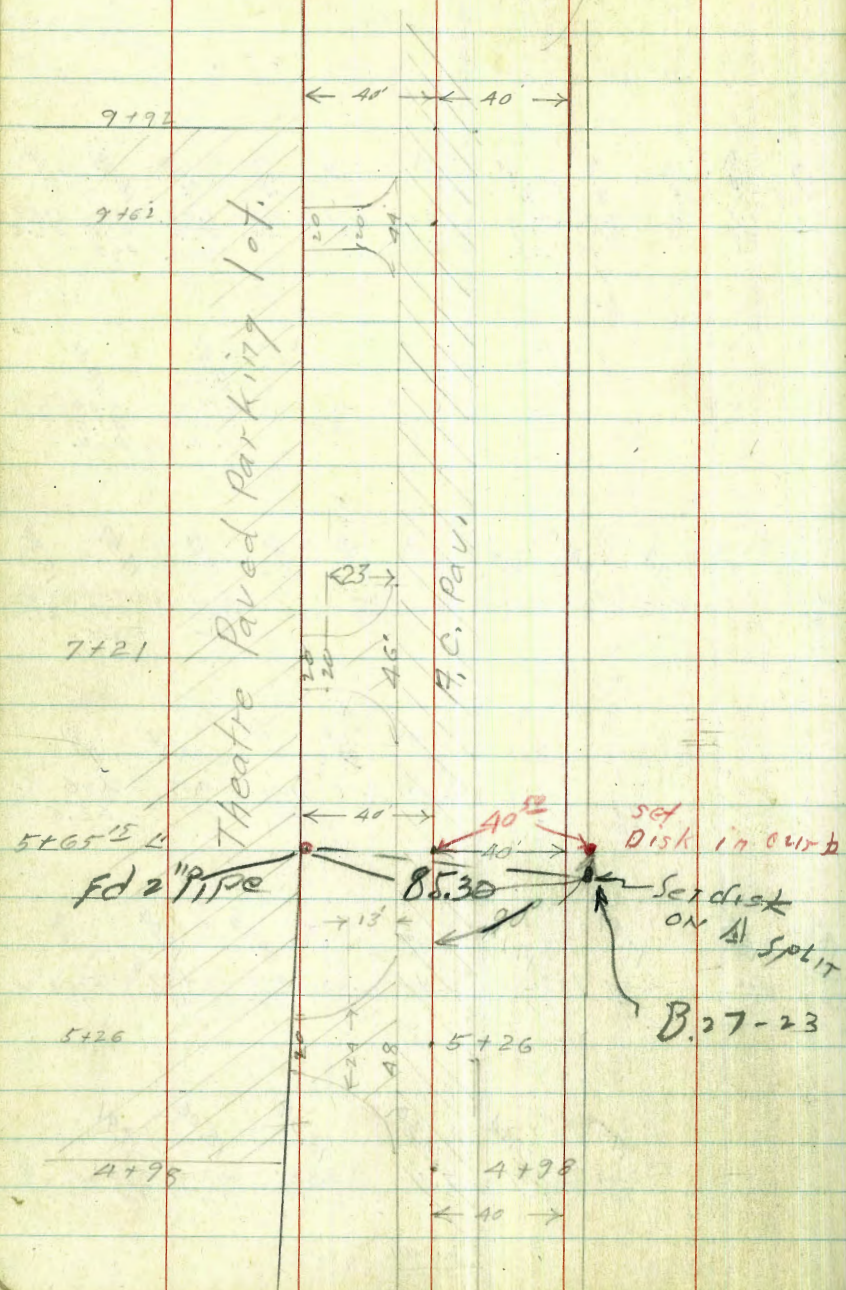 ← 40' → ← 40' →
9+92
9+62
20
20
44
Theatre Paved Parking lot.
A.C. Pav.
←23→
7+21
20
20
46'
← 40' →
40 50
set
Disk in curb
5+65 15
40'
Fd 2" Pipe
85.30
Set disk
ON Δ
SPLIT
13'
90°
B.27-23
5+26
20
24
48
5+26
4+98
4+98
← 40 →